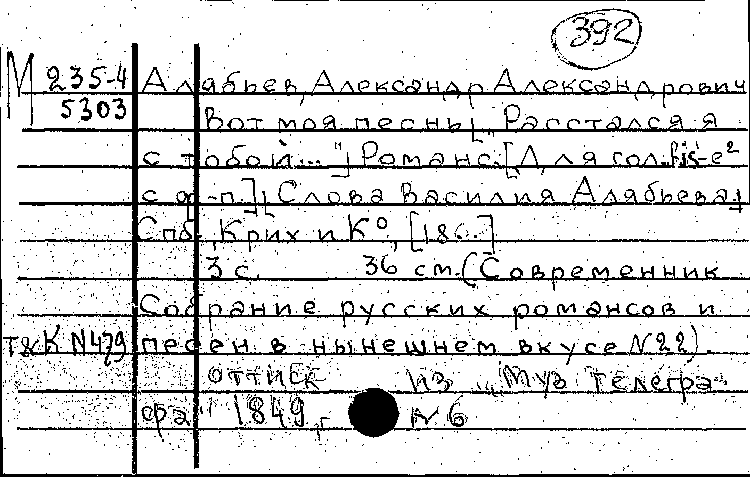 392
М 235-4 Алябьев, Александр Александрович
5303 Вот моя песнь[„Расстался я
с тобой..."] Романс. [Для гол. fis-e²
с ф-п.] [Слова Василия Алябьева]
Спб., Крих и К⁰, [186.]
3 с. 36 см. (Современник
Собрание русских романсов и
т&К N479 песен в нынешнем вкусе N22).
оттиск из „Муз телегра-
фа" 1849 г N6